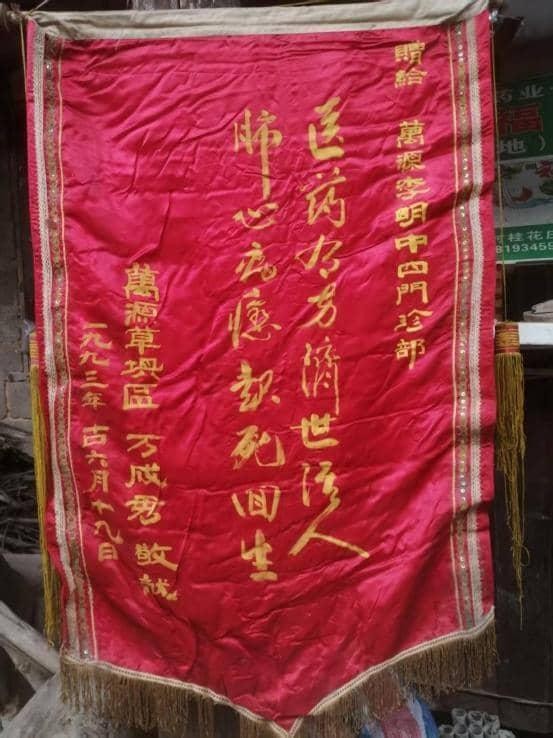 贈给 萬源李明中四門诊部
医药有方濟世活人
肺心病癒起死回生
萬源草埧區 万成君 敬献
一九九三年 古六月十九日
业
福
地）
村桂花
8193459